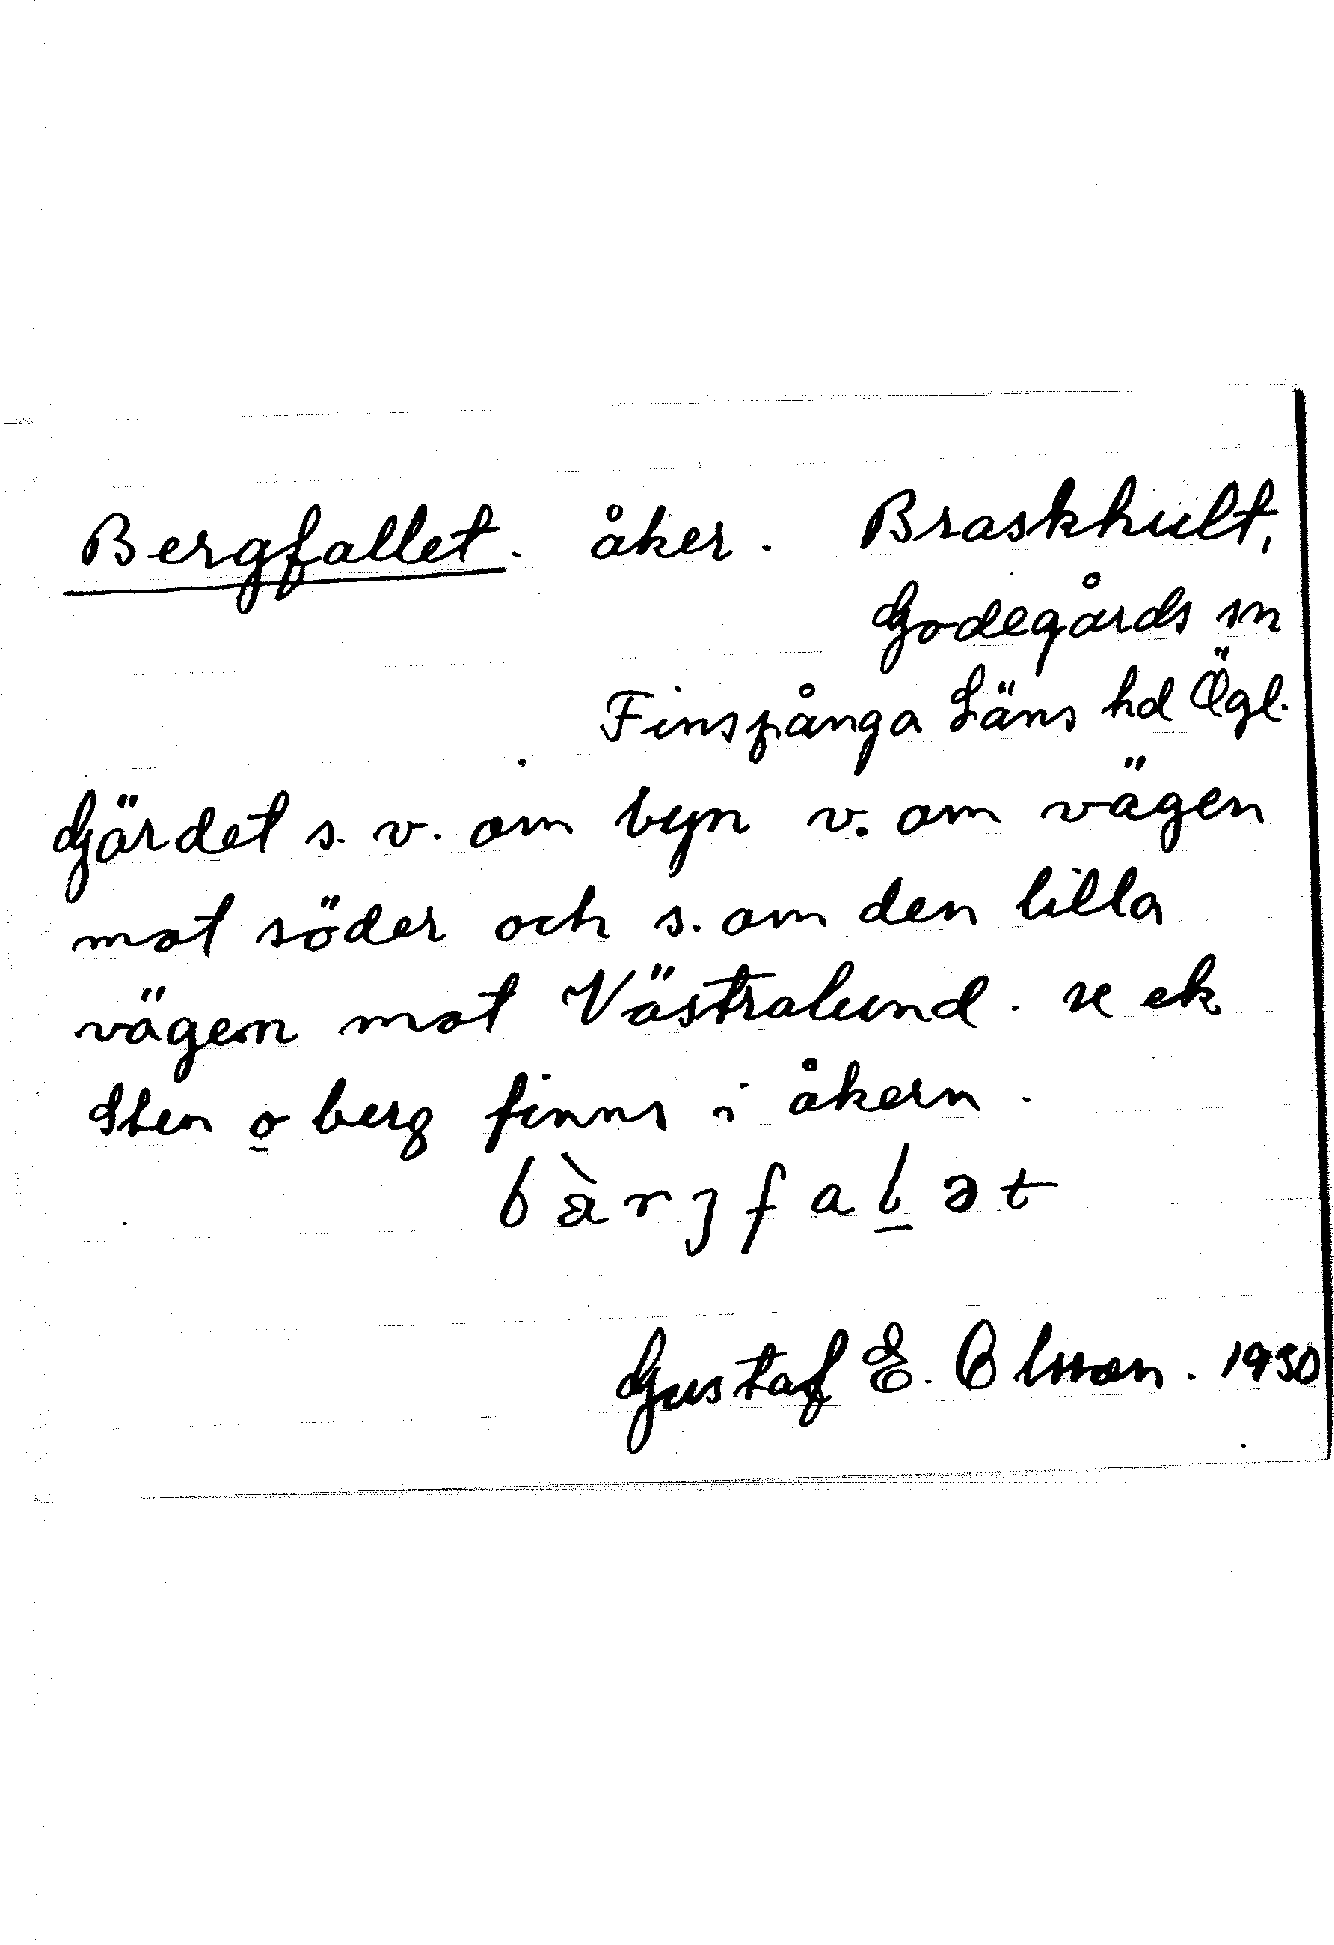 Bergfallet. åker. Braskhult,
Godegårds sn
Finspånga Läns hd Ögl.
Gärdet s. v. om byn v. om vägen
mot söder och s. om den lilla
vägen mot Västralund. se ek
Sten o berg finns i åkern.
bàrjfalət
Gustaf E. Olsson. 1930